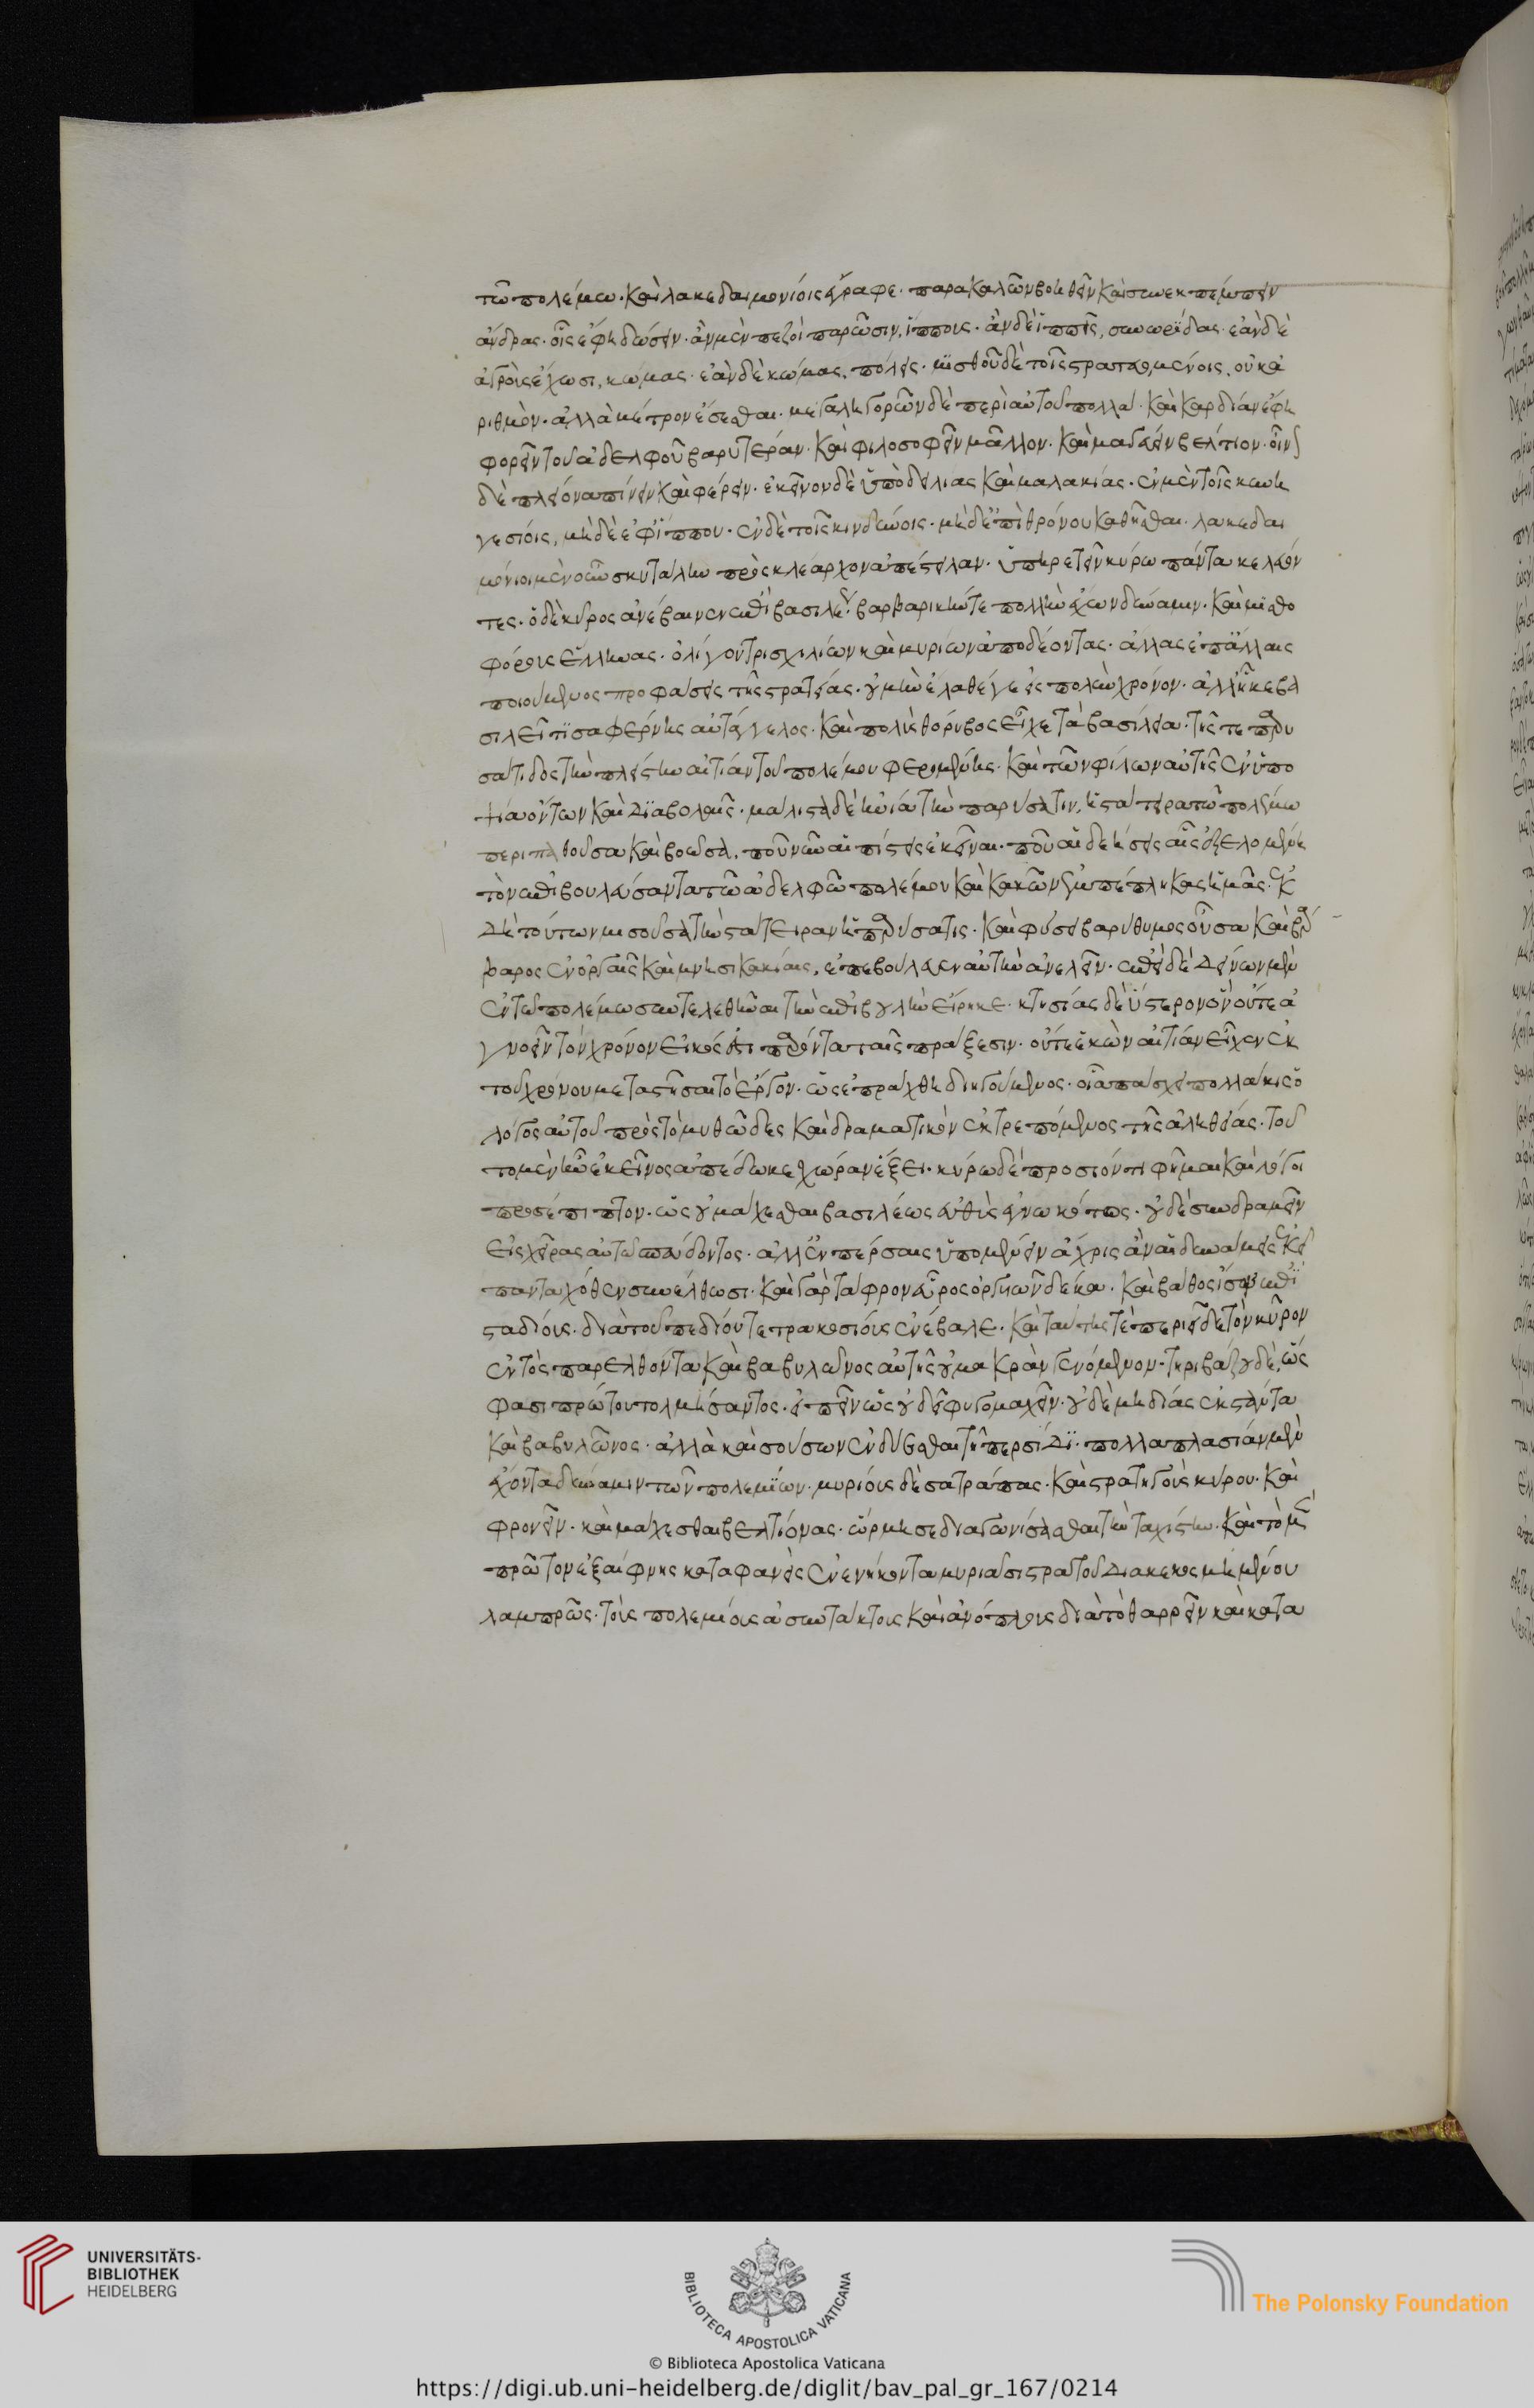 τῶ πολέμω· καὶ λακεδαιμονίοις ἔγραφε· παρακαλῶν βοηθεῖν καὶ συνεκπέμπειν
ἄνδρας· οἷς ἐφη δώσειν· ἂν μὲν πεζοὶ παρῶσιν, ἵππους· ἂν δὲ ἱππεῖς, συνωρίδας· ἐὰν δὲ
ἀγροὺς ἔχωσι, κώμας· ἐὰν δὲ κώμας, πόλεις· μισθοῦ δὲ τοῖς στρατευομένοις, οὐκ ἀ
ριθμὸν· ἀλλὰ μέτρον ἔσεσθαι· μεγαληγορῶν δὲ περὶ αὐτοῦ πολλὰ· καὶ καρδίαν ἐφη
φορεῖν τοῦ ἀδελφοῦ βαρυτέραν· καὶ φιλοσοφεῖν μᾶλλον· καὶ μαγεύειν βέλτιον· οἶνον
δὲ πλείονα πίνειν καὶ φέρειν· ἐκεῖνον δὲ ὑπὸ δειλίας καὶ μαλακίας· ἐν μὲν τοῖς κυνη
γεσίοις, μηδὲ ἐφ ἵππου· ἐν δὲ τοῖς κινδύνοις· μηδὲ ἐπὶ θρόνου καθῆσθαι· λακεδαι
μόνιοι μὲν οὖν σκυτάλην πρὸς κλέαρχον ἀπέστειλαν· ὑπηρετεῖν κύρω πάντα κελεύον
τες· ὁ δὲ κῦρος ἀνέβαινεν ἐπὶ βασιλέα βαρβαρικήν τε πολλὴν ἔχων δύναμιν· καὶ μισθο
φόρους ἕλληνας· ὀλίγον τρισχιλίων καὶ μυρίων ἀποδέοντας· ἄλλας ἐπ ἄλλαις
ποιούμενος προφάσεις τῆς στρατείας· οὐ μὴν ἔλαθέ γε εἰς πολὺν χρόνον· ἀλλ ἧκε βα
σιλεῖ τισαφέρνης αὐτάγγελος· καὶ πολὺς θόρυβος εἶχε τὰ βασίλεια· τῆς τε παρυ
σάτιδος τὴν πλείστην αἰτίαν τοῦ πολέμου φερομένης· καὶ τῶν φίλων αὐτῆς ἐν ὑπο
ψία ὄντων καὶ διαβολαῖς· μάλιστα δὲ ἠνία τὴν παρύσατιν, ἡ στάτειρα τῶ πολέμω
περιπαθοῦσα καὶ βοῶσα, ποῦ νῦν αἱ πίστεις ἐκεῖναι· ποῦ αἱ δεήσεις αἷς ἐξελομένη
τὸν ἐπιβουλεύσαντα τῶ ἀδελφῶ πολέμου καὶ κακῶν ἐμπέπληκας ἡμᾶς· ἐκ
δὲ τούτων μισοῦσα τὴν στάτειραν ἡ παρύσατις· καὶ φύσει βαρύθυμος οὖσα καὶ βάρ
βαρος ἐν ὀργαῖς καὶ μνησικακίαις, ἐπεβούλευεν αὐτὴν ἀνελεῖν· ἐπεὶ δὲ δείνων μὲν
ἐν τῶ πολέμω συντελεσθῆναι τὴν ἐπιβουλὴν εἴρηκε· κτησίας δὲ ὕστερον ὃν οὔτε ἀ
γνοεῖν τὸν χρόνον εἰκός ἐστι παρόντα ταῖς πράξεσιν· οὔτε ἑκὼν αἰτίαν εἶχεν ἐκ
τοῦ χρόνου μεταστῆσαι τὸ ἔργον· ὡς ἐπράχθη διηγούμενος· οἷα πάσχει πολλάκις ὁ
λόγος αὐτοῦ πρὸς τὸ μυθῶδες καὶ δραματικὸν ἐκτρεπόμενος τῆς ἀληθείας· τοῦ
το μὲν ἣν ἐκεῖνος ἀπέδωκε χώραν ἕξει· κύρω δὲ προσιόντι φῆμαι καὶ λόγοι
προσέπιπτον· ὡς οὐ μάχεσθαι βασιλέως εὐθὺς ἐγνωκότος· οὐδὲ συνδραμεῖν
εἰς χεῖρας αὐτῶ σπεύδοντος· ἀλλ ἐν πέρσαις ὑπομένειν ἄχρις ἂν αἱ δυνάμεις ἐκεῖ
πανταχόθεν συνέλθωσι· καὶ γὰρ τάφρον εὖρος ὀργυιῶν δέκα· καὶ βάθος ἴσων ἐπὶ
σταδίους· διὰ τοῦ πεδίου τετρακοσίους ἐνέβαλε· καὶ ταύτης τε περιεῖδε τὸν κῦρον
ἐντὸς παρελθόντα καὶ βαβυλῶνος αὐτῆς οὐ μακρὰν γενόμενον· τηριβάζου δὲ, ὥς
φασι πρώτου τολμήσαντος· εἰπεῖν ὡς οὐ δεῖ φυγομαχεῖν· οὐδὲ μηδίας ἐκστάντα
καὶ βαβυλῶνος· ἀλλὰ καὶ σούσων ἐνδύεσθαι τῆ περσίδι· πολλαπλασίαν μὲν
ἔχοντα δύναμιν τῶν πολεμίων· μυρίους δὲ σατράπας· καὶ στρατηγοὺς κύρου· καὶ
φρονεῖν· καὶ μάχεσθαι βελτίονας· ὥρμησε διαγωνίσασθαι τὴν ταχίστην· καὶ τὸ μὲν
πρῶτον ἐξαίφνης καταφανεὶς ἐνενήκοντα μυριάσι στρατοῦ διακεκοσμημένου
λαμπρῶς· τοὺς πολεμίους ἀσυντάκτους καὶ ἀνόπλους διὰ τὸ θαρρεῖν καὶ κατα
UNIVERSITÄTS-
BIBLIOTHEK
HEIDELBERG
BIBLIOTECA APOSTOLICA VATICANA
The Polonsky Foundation
© Biblioteca Apostolica Vaticana
https://digi.ub.uni-heidelberg.de/diglit/bav_pal_gr_167/0214